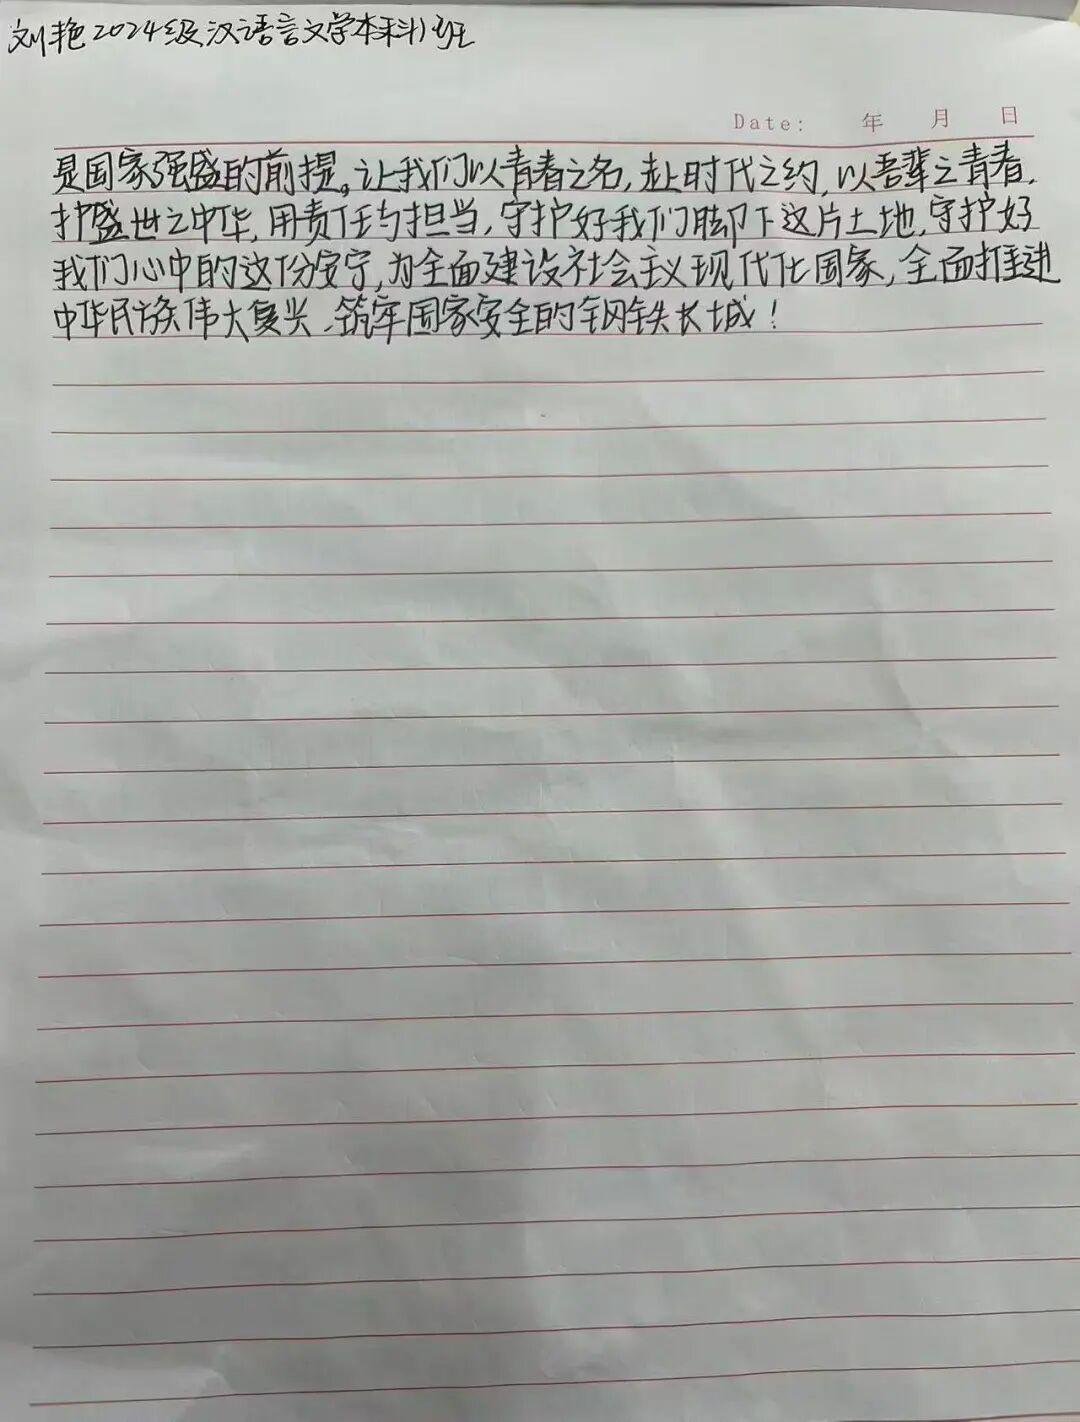 刘艳2024级汉语言文学本科1班
Date: 年 月 日
是国家强盛的前提。让我们以青春之名,赴时代之约,以吾辈之青春,
护盛世之中华,用责任与担当,守护好我们脚下这片土地,守护好
我们心中的这份安宁,为全面建设社会主义现代化国家,全面推进
中华民族伟大复兴、筑牢国家安全的钢铁长城!